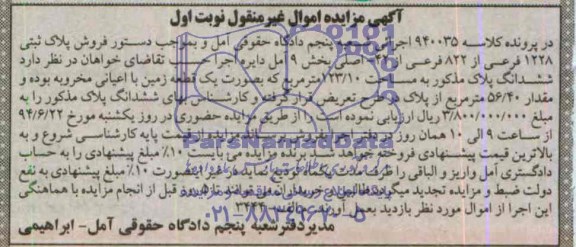 آگهی مزایده اموال غیرمنقول نوبت اول
در پرونده کلاسه ۹۴۰۰۳۵ اجرا پنجم دادگاه حقوقی آمل و بموجب دستور فروش پلاک ثبتی
۱۲۲۸ فرعی از ۸۲۲ فرعی از اصلی بخش ۹ آمل دایره اجرا حسب تقاضای خواهان در نظر دارد
ششدانگ پلاک مذکور به مساحت ۱۲۳/۱۰ مترمربع که بصورت یک قطعه زمین با اعیانی مخروبه بوده و
مقدار ۵۶/۴۰ مترمربع از پلاک در طرح تعریض قرار گرفته و کارشناس بهای ششدانگ پلاک مذکور را به
مبلغ ۳/۸۰۰/۰۰۰/۰۰۰ ریال ارزیابی نموده است را از طریق مزایده حضوری در روز یکشنبه مورخ ۹۴/۶/۲۲
از ساعت ۹ الی ۱۰ همان روز در دفتر اجرا بفروش برساند مزایده از قیمت پایه کارشناسی شروع و به
بالاترین قیمت پیشنهادی فروخته خواهد شد برنده مزایده می بایست ۱۰٪ مبلغ پیشنهادی را به حساب
دادگستری آمل واریز و الباقی را ظرف مدت یکماه تودیع نماید در غیر اینصورت ۱۰٪ مبلغ پیشنهادی به نفع
دولت ضبط و مزایده تجدید میگردد طالبین و خریداران می توانند تا ۵ روز قبل از انجام مزایده با هماهنگی
این اجرا از اموال مورد نظر بازدید بعمل آورند. ۳۴۴۴
مدیر دفتر شعبه پنجم دادگاه حقوقی آمل- ابراهیمی
ParsNamadData
۰۲۱-۸۸۳۴۹۶۷۰-۵